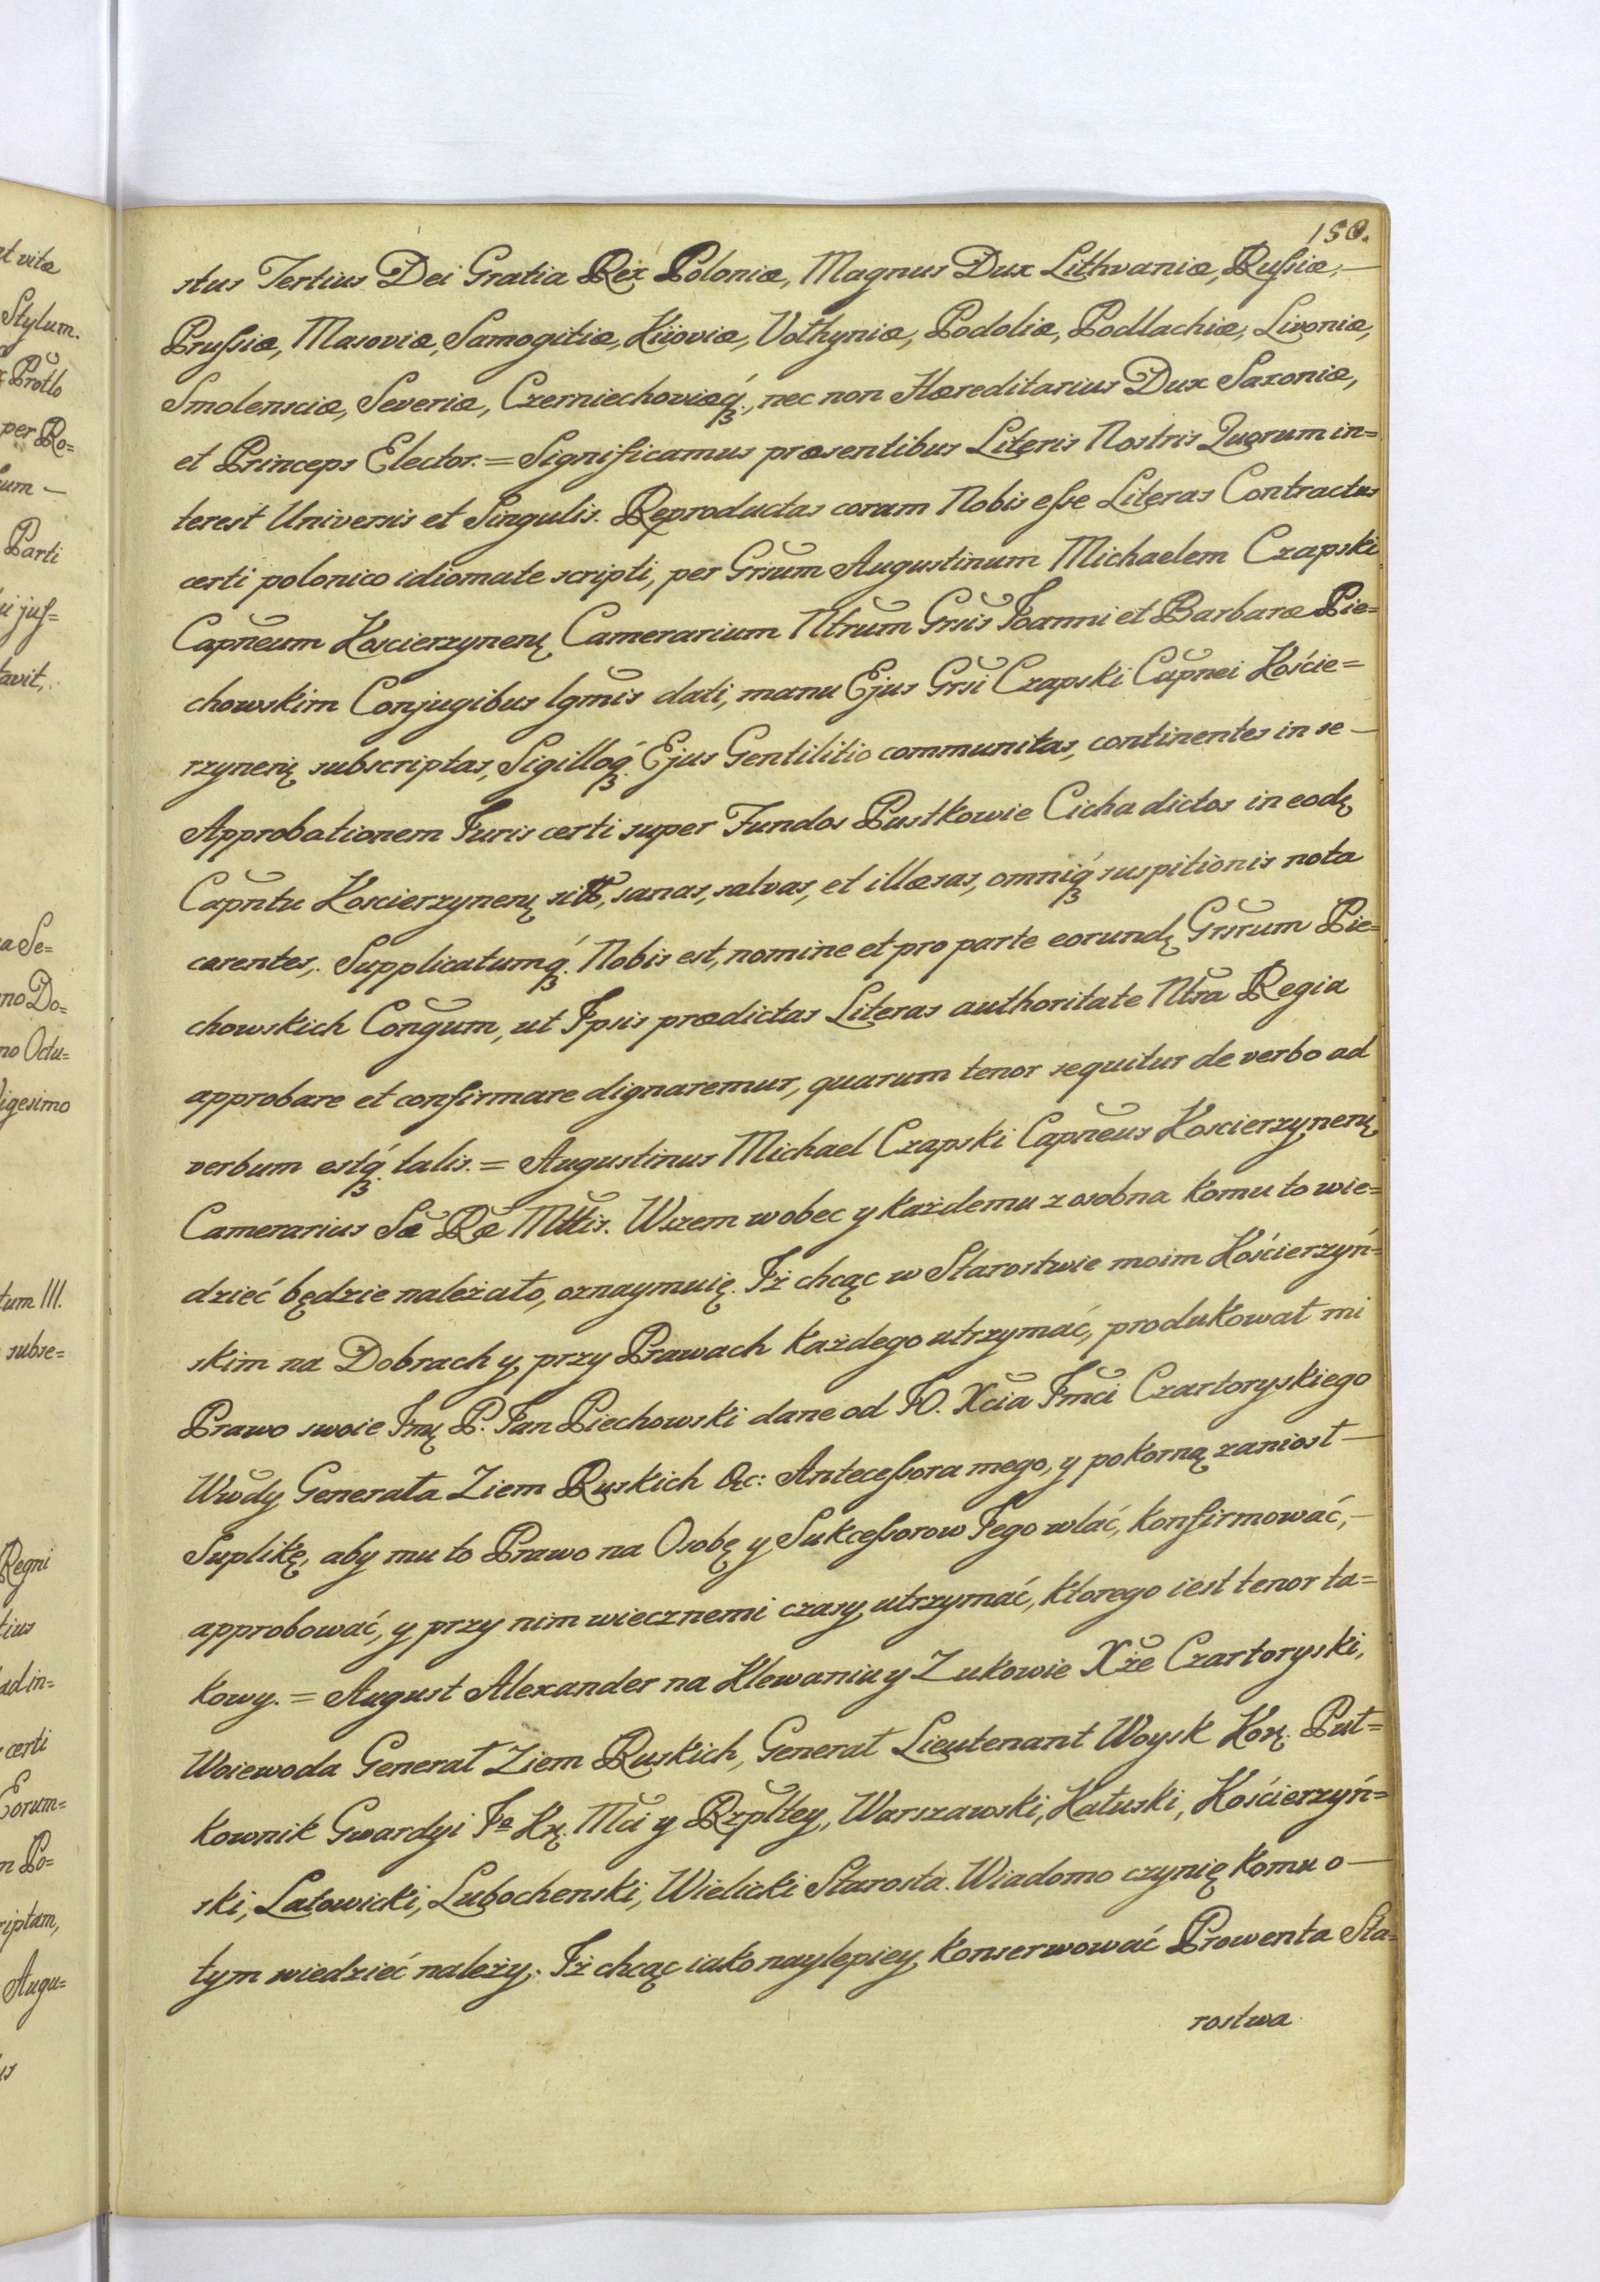 150.
stus Tertius Dei Gratia Rex Poloniæ, Magnus Dux Lithvaniæ, Rußiæ, —
Prußiæ, Masoviæ, Samogitiæ, Kijoviæ, Vothyniæ, Podoliæ, Podlachiæ, Livoniæ,
Smolensciæ, Severiæ, Czerniechoviæq́ꝫ, nec non Hæreditarius Dux Saxoniæ,
et Princeps Elector. = Significamus præsentibus Literis Nostris Quorum in=
terest Universis et Singulis. Reproductas coram Nobis eße Literas Contractus
certi polonico idiomate scripti, per Grsum Augustinum Michaelem Czapski
Capneum Koscierzynenę Camerarium Ntrum Grsis Joanni et Barbaræ Pie=
chowskim Conjugibus lgmis dati, manu Ejus Grsi Czapski Capnei Koście=
rzynenę subscriptas, Sigilloq́ꝫ Ejus Gentilitio communitas, continentes in se —
Approbationem Juris certi super Fundos Pustkowie Cicha dictos in eodę
Capntu Koscierzynenę sitt, sanas, salvas, et illæsas, omniq́ꝫ suspitionis nota
carentes,. Supplicatumq́ꝫ Nobis est, nomine et pro parte eorundę Grsrum Pie=
chowskich Congum, ut Ipsis prædictas Literas authoritate Ntra Regia
approbare et confirmare dignaremur, quarum tenor sequitur de verbo ad
verbum estq́ꝫ talis. = Augustinus Michael Czapski Capneus Koscierzynenę
Camerarius Sæ Ræ Mttis. Wszem wobec y każdemu z osobna komu to wie=
dzieć będzie należato, oznaymuię. Iż chcąc w Starostwie moim Kościerzyń=
skim na Dobrach y przy Prawach każdego utrzymać, produkowat mi
Prawo swoie Jmę P. Jan Piechowski dane od JO. Xcia Jmci Czartoryskiego
Wwdy Generata Ziem Ruskich &c: Anteceßora mego, y pokorną zaniost —
Suplikę, aby mu to Prawo na Osobę y Sukceßorow Jego wlać, konfirmować, —
approbować, y przy nim wiecznemi czasy utrzymać, ktorego iest tenor ta=
kowy. = August Alexander na Klewaniu y Zukowie Xże Czartoryski,
Woiewoda Generat Ziem Ruskich, Generat Lieutenant Woysk Korę. Put=
kownik Gwardyi Jo Krę. Mci y Rzpltey, Warszawski, Katuski, Kościerzyń=
ski, Latowicki, Lubochenski, Wielicki Starosta. Wiadomo czynię komu o —
tym wiedzieć należy,. Iż chcąc iako naylepiey konserwować Prowenta Sta=
rostwa
at vitæ
Stylum.
Protlo
per Ro=
um —
Parti
juß=
tavit,
a Se=
no Do=
no Octu=
igesimo
tum III.
subse=
Regni
tius
ad in=
certi
Eorum=
m Po=
riptam,
Augu=